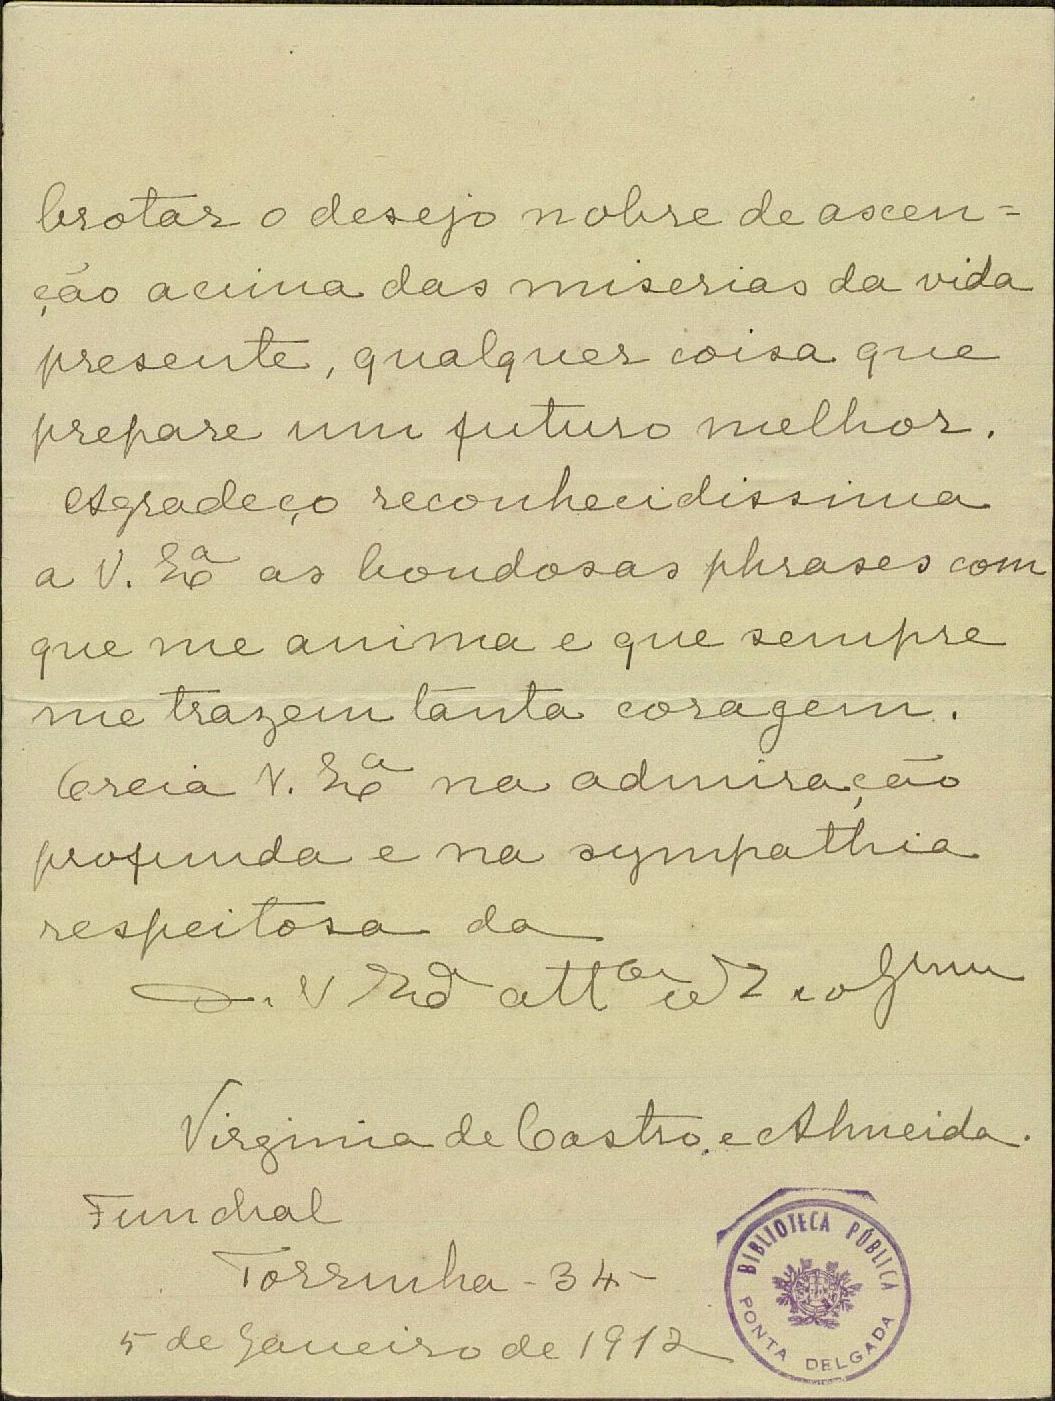 brotar o desejo nobre de ascen=
ção acima das miserias da vida
presente, qualquer coisa que
prepare um futuro melhor.
Agradeço reconhecidissima
a V. Exª as bondosas phrases com
que me anima e que sempre
me trazem tanta coragem.
Creia V. Exª na admiração
profunda e na sympathia
respeitosa da
De V Exª attª
Virginia de Castro e Almeida.
Funchal
Torrinha - 34 -
5 de Janeiro de 1912
BIBLIOTECA PÚBLICA
PONTA DELGADA